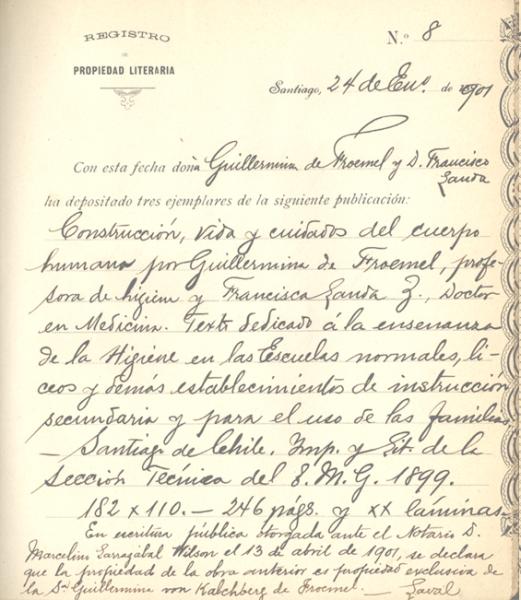 REGISTRO
DE
PROPIEDAD LITERARIA
N.º 8
Santiago, 24 de En.º de 1901
Con esta fecha doña Guillermina de Froemel y D. Francisco
Landa
ha depositado tres ejemplares de la siguiente publicación:
Construcción, vida y cuidados del cuerpo
humano por Guillermina de Froemel, profe-
sora de higiene y Francisco Landa Z., Doctor
en Medicina. Texto dedicado á la enseñanza
de la Higiene en las Escuelas normales, li-
ceos y demás establecimientos de instrucción
secundaria y para el uso de las familias.
— Santiago de Chile. Imp. y Lit. de la
Sección Técnica del E. M. G. 1899.
182 x 110. — 246 págs. y XX láminas.
En escritura pública otorgada ante el Notario D.
Marcelino Larrazabal Wilson el 13 de abril de 1901, se declara
que la propiedad de la obra anterior es propiedad exclusiva de
la Sra Guillermina von Kalchberg de Froemel. — Laval